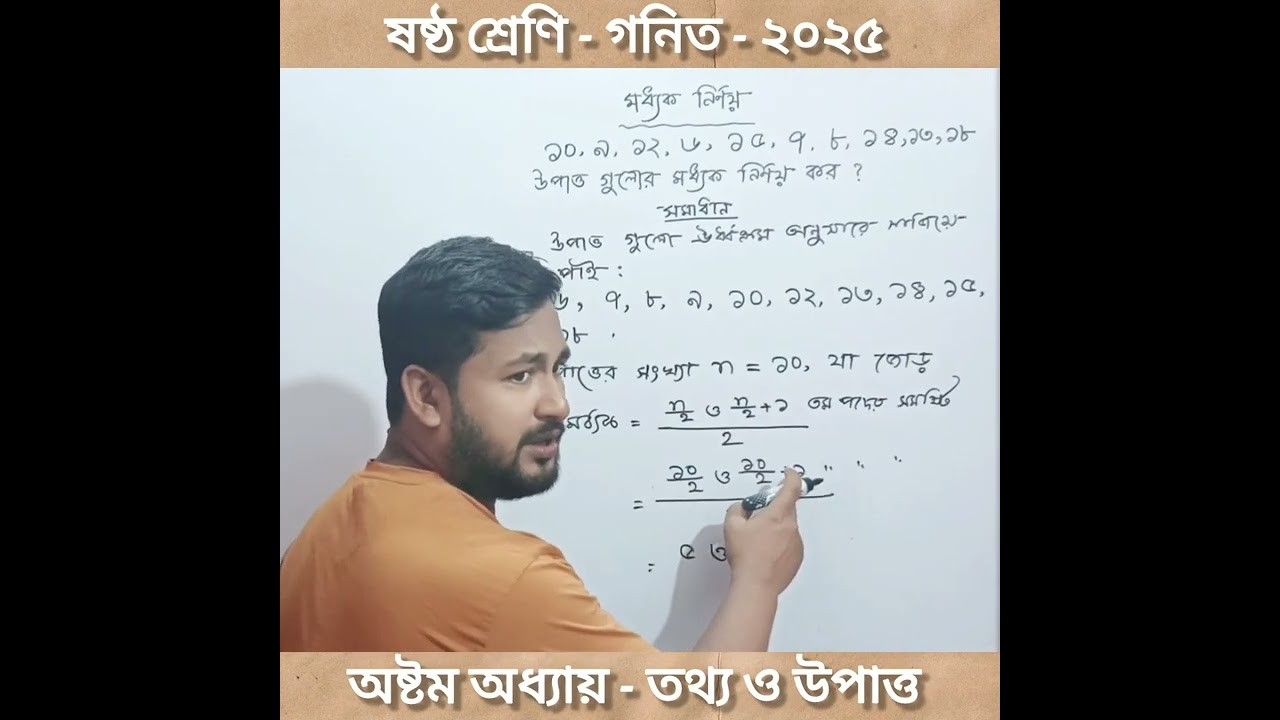 ষষ্ঠ শ্রেণি - গনিত - ২০২৫
মধ্যক নির্ণয়
১০, ৯, ১২, ৬, ১৫, ৭, ৮, ১৪, ১৩, ১৮
উপাত্ত গুলোর মধ্যক নির্ণয় কর ?
সমাধান
উপাত্ত গুলো ঊর্ধ্বক্রম অনুসারে সাজিয়ে
পাই :
৬, ৭, ৮, ৯, ১০, ১২, ১৩, ১৪, ১৫,
১৮
সংখ্যা n = ১০, যা জোড়
মধ্যক = n/2 ও n/2 + ১ তম পদের সমষ্টি
2
= ১০/2 ও ১০/2 + ১ " " "
= ৫ ও
অষ্টম অধ্যায় - তথ্য ও উপাত্ত